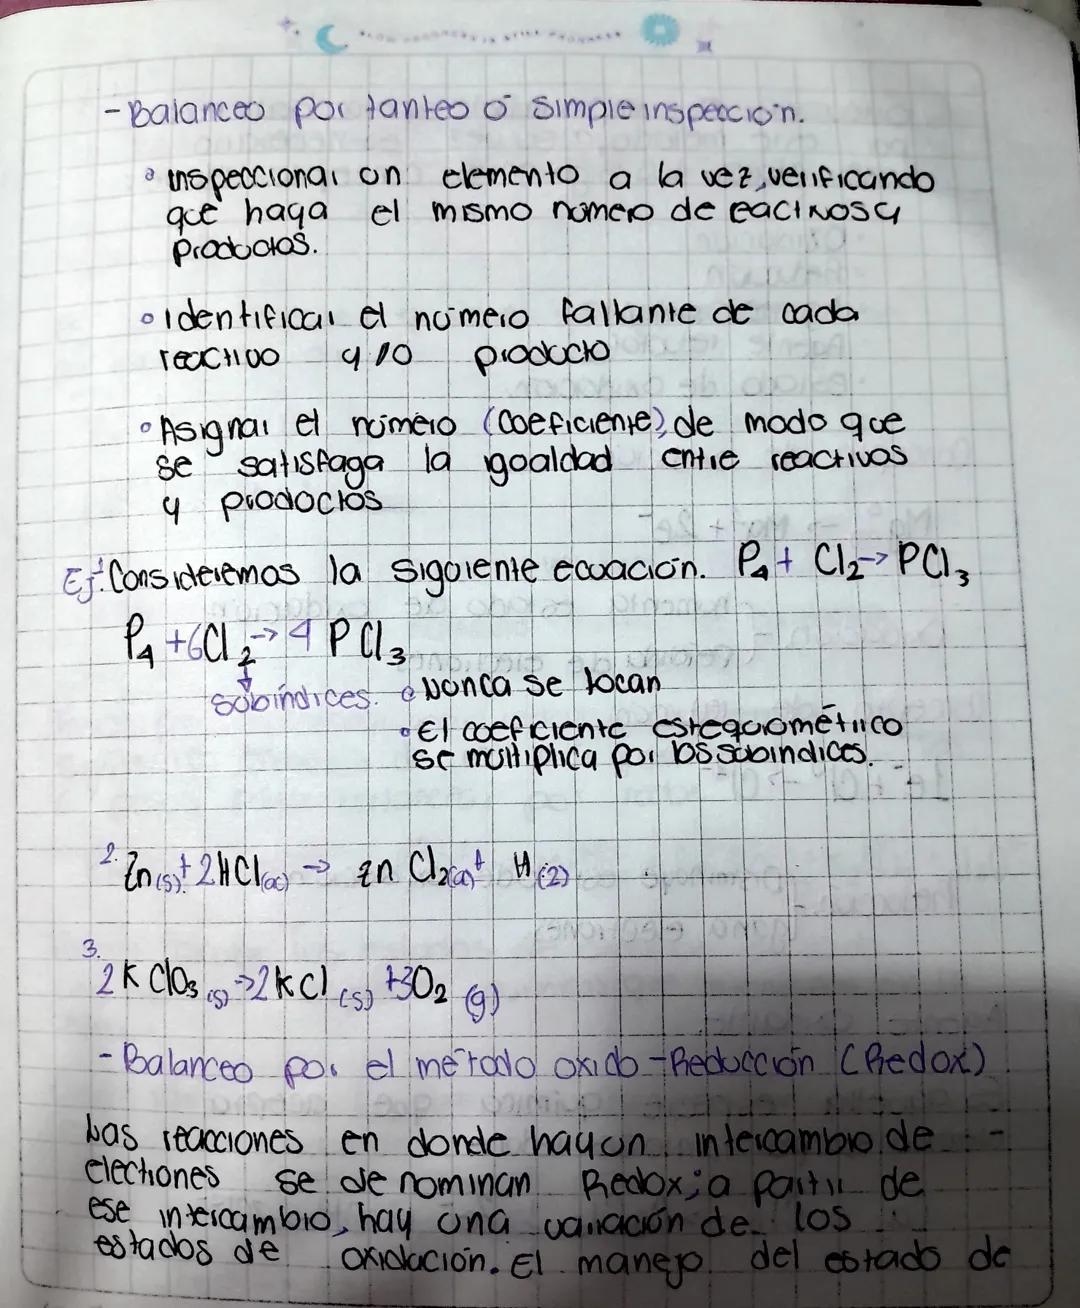 - Balanceo por tanteo ó simple inspección.
• inspeccionar un elemento a la vez, verificando
que haga el mismo número de eactivos y
productos.
• identificar el número faltante de cada
reactivo y/o producto
• Asignar el número (coeficiente) de modo que
se satisfaga la igualdad entre reactivos
y productos
Ej: 1. Consideremos la siguiente ecuación. P₄ + Cl₂ → PCl₃
P₄ + 6Cl₂ → 4 PCl₃
subíndices. • Nunca se tocan
• El coeficiente estequiométrico
se multiplica por los subindices.
2. Zn(s) + 2HCl(ac) → Zn Cl₂(a) + H(2)
3.
2K ClO₃ (s) → 2KCl (s) + 3O₂ (g)
- Balanceo por el método oxido-Reducción (Redox)
Las reacciones en donde hay un intercambio de
electrones se denominan Redox; a partir de
ese intercambio, hay una variación de los
estados de oxidación. El manejo del estado de